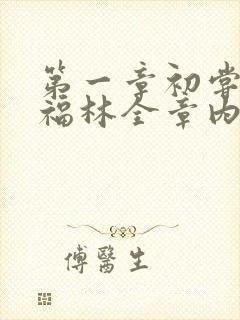 第一章初尝
福林全章内
傅醫生